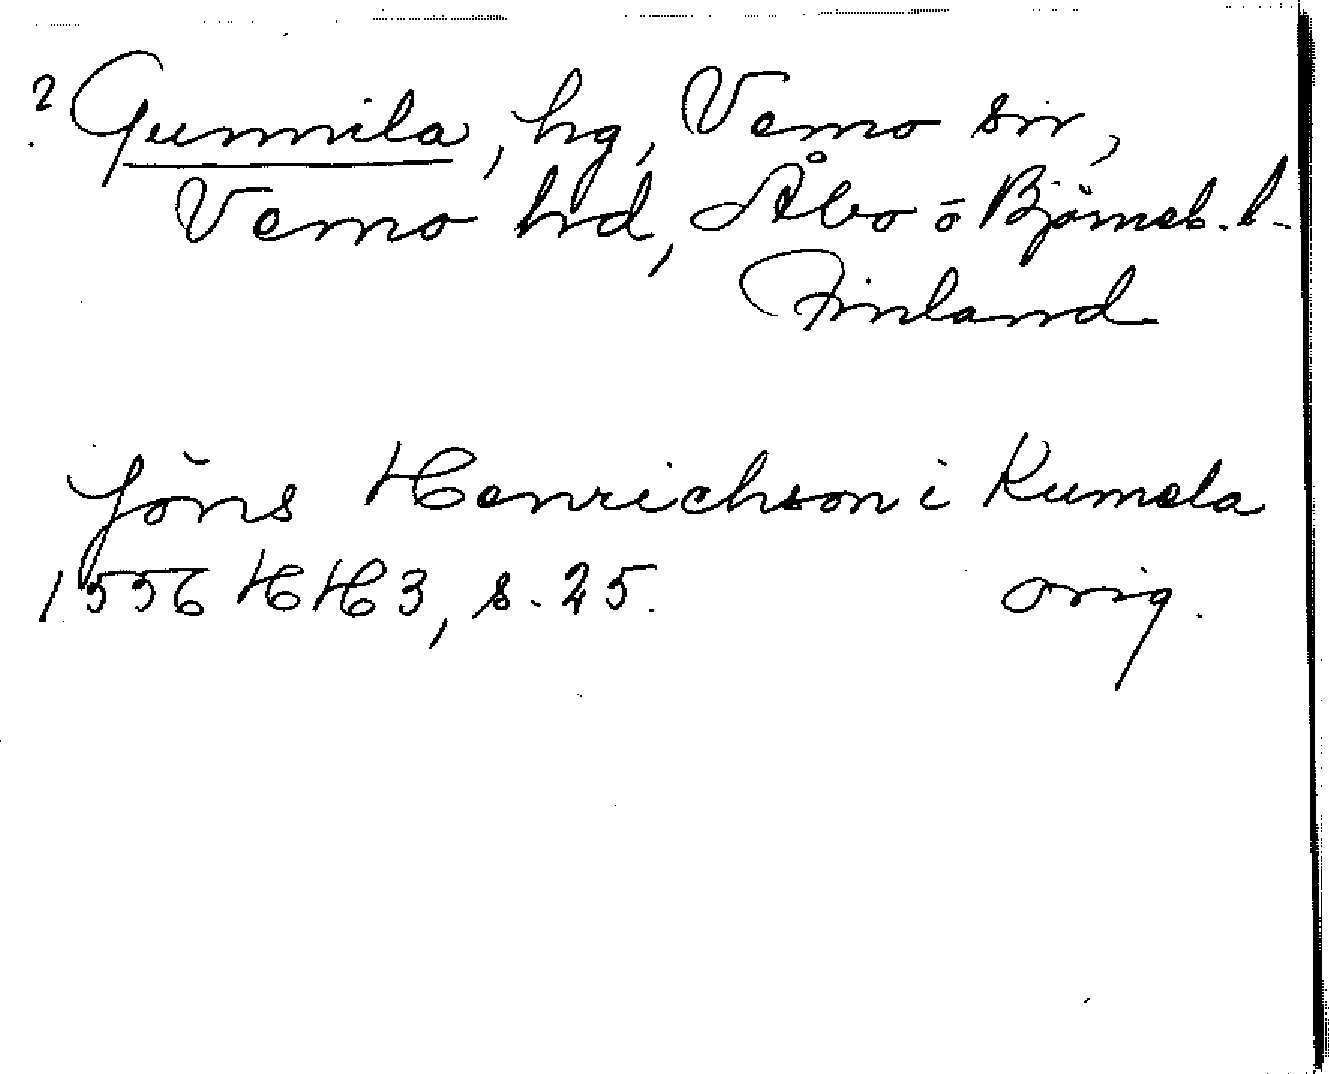 ? Gummila, hg, Vemo sn,
Vemo hd, Åbo o Björneb. l.
Finland
Jöns Henrichson i Kumela
1556 HH3, s. 25. orig.